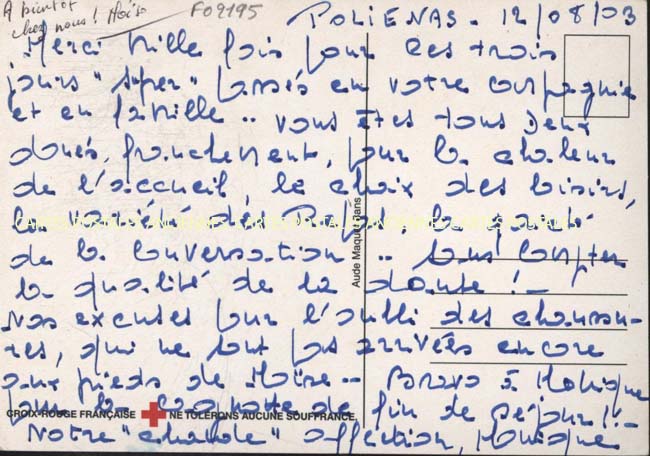 A bientôt
chez nous !
F09195
POLIENAS. 12/08/03
Merci mille fois pour ces trois
jours "super" passés en votre compagnie
et en famille .. vous êtes tous deux
doués, franchement, pour la chaleur
de l'accueil, le choix des loisirs,
la variété de la
de la conversation .. sans compter
la qualité de la !_
Nos excuses pour l'oubli des chaussu-
res, qui ne sont pas arrivées encore
aux pieds de Moïse .. Bravo à Monique
pour la cagnotte de fin de séjour !._
Notre "chaude" affection, Monique
Aude Maquet
CROIX-ROUGE FRANÇAISE NE TOLÉRONS AUCUNE SOUFFRANCE